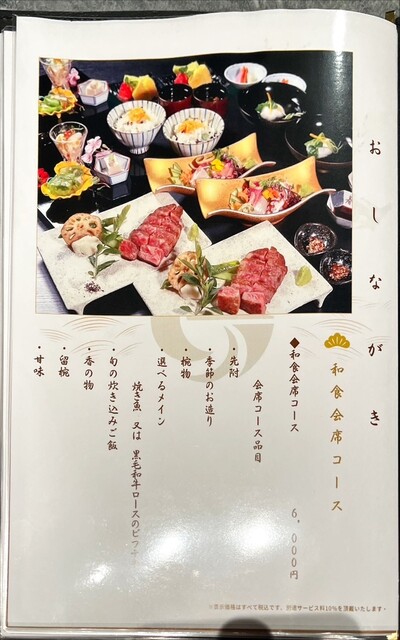 おしながき
和食会席コース
◆和食会席コース 6,000円
会席コース品目
・先附
・季節のお造り
・椀物
・選べるメイン
焼き魚 又は 黒毛和牛ロースの
・旬の炊き込みご飯
・香の物
・留椀
・甘味
※表示価格はすべて税込です。別途サービス料10%を頂戴いたします。